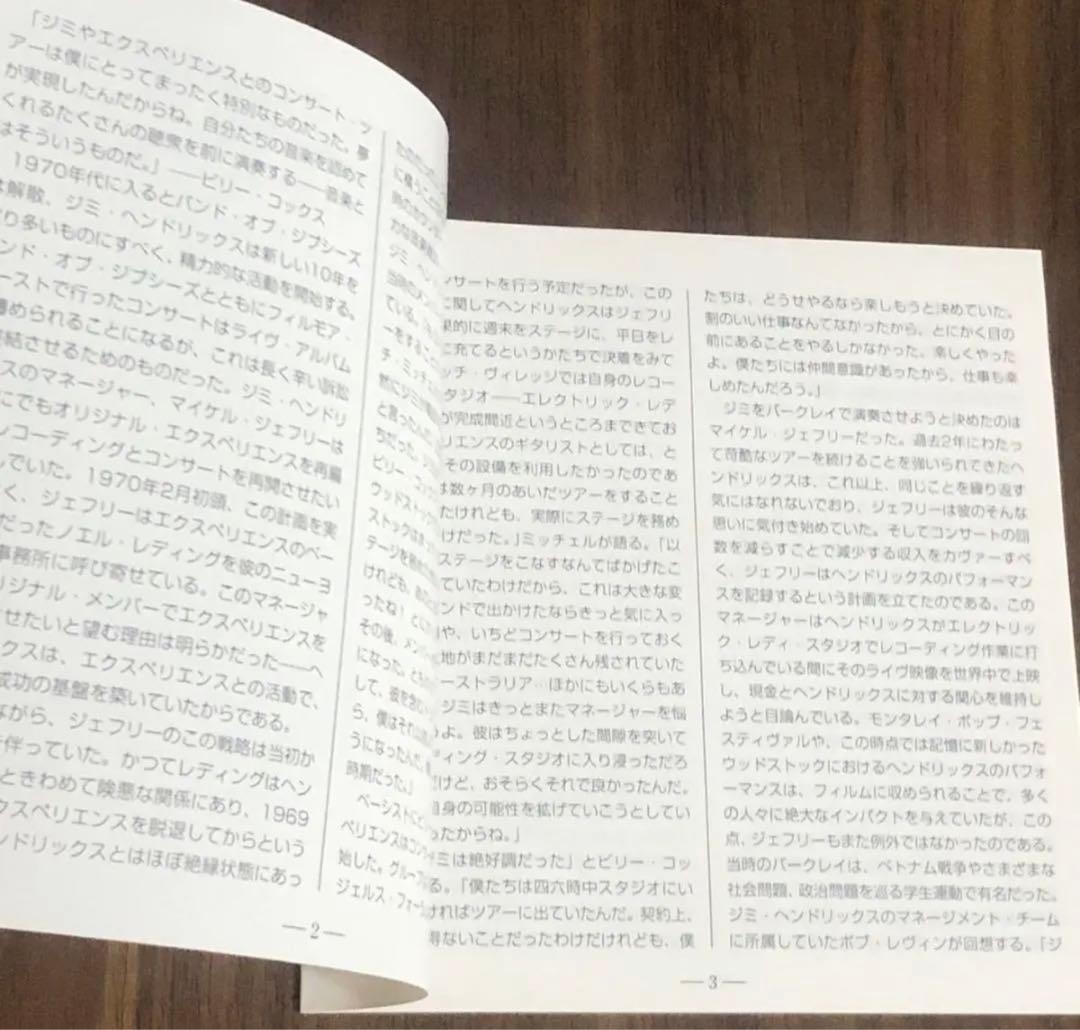 「ジミやエクスペリエンスとのコンサート・ツ
アーは僕にとってまったく特別なものだった。夢
が実現したんだからね。自分たちの音楽を認めて
くれるたくさんの聴衆を前に演奏する――音楽と
はそういうものだ。」――ビリー・コックス
1970年代に入るとバンド・オブ・ジプシーズ
は解散、ジミ・ヘンドリックスは新しい10年を
り多いものにすべく、精力的な活動を開始する。
ンド・オブ・ジプシーズとともにフィルモア・
ーストで行ったコンサートはライヴ・アルバム
められることになるが、これは長く辛い訴訟
結させるためのものだった。ジミ・ヘンドリ
スのマネージャー、マイケル・ジェフリーは
にでもオリジナル・エクスペリエンスを再編
レコーディングとコンサートを再開させたい
していた。1970年2月初頭、この計画を実
く、ジェフリーはエクスペリエンスのベー
だったノエル・レディングを彼のニューヨ
事務所に呼び寄せている。このマネージャ
リジナル・メンバーでエクスペリエンスを
させたいと望む理由は明らかだった――ヘ
クスは、エクスペリエンスとの活動で、
成功の基盤を築いていたからである。
ながら、ジェフリーのこの戦略は当初か
を伴っていた。かつてレディングはヘン
ときわめて険悪な関係にあり、1969
クスペリエンスを脱退してからという
ンドリックスとはほぼ絶縁状態にあっ
に構うこと
ジミ・ヘン
当時のメン
ている。
ーをするこ
チ・ミッチェル
と言ったんだ
ちだった。
ビリー・コック
ウッドストック
ストックは
テージを
けれども、
ったね!
その後、メンバー
になった。
して、彼を
ら、僕はそれ
うになったんだ
時期だった。」
ベーシストに
ペリエンスはコン
始した。グループ
ジェルス・フォー
―2―
ンサートを行う予定だったが、この
に関してヘンドリックスはジェフリ
果的に週末をステージに、平日をレ
に充てるというかたちで決着をみて
ッチ・ヴィレッジでは自身のレコー
タジオ――エレクトリック・レデ
が完成間近というところまできてお
リエンスのギタリストとしては、と
その設備を利用したかったのであ
は数ヶ月のあいだツアーをすること
たけれども、実際にステージを務め
けだった。」ミッチェルが語る。「以
ステージをこなすなんてばかげたこ
ていたわけだから、これは大きな変
ンドで出かけたならきっと気に入っ
や、いちどコンサートを行っておく
地がまだまだたくさん残されていた
ーストラリア…ほかにもいくらもあ
ジミはきっとまたマネージャーを悩
よ。彼はちょっとした間隙を突いて
ディング・スタジオに入り浸っただろ
だけど、おそらくそれで良かったんだ。
自身の可能性を拡げていこうとしてい
ったからね。」
ミは絶好調だった」とビリー・コッ
る。「僕たちは四六時中スタジオにい
ければツアーに出ていたんだ。契約上、
得ないことだったわけだけれども、僕
たちは、どうせやるなら楽しもうと決めていた。
割のいい仕事なんてなかったから、とにかく目の
前にあることをやるしかなかった。楽しくやった
よ。僕たちには仲間意識があったから、仕事も楽
しめたんだろう。」
ジミをバークレイで演奏させようと決めたのは
マイケル・ジェフリーだった。過去2年にわたっ
て苛酷なツアーを続けることを強いられてきたヘ
ンドリックスは、これ以上、同じことを繰り返す
気にはなれないでおり、ジェフリーは彼のそんな
思いに気付き始めていた。そしてコンサートの回
数を減らすことで減少する収入をカヴァーすべ
く、ジェフリーはヘンドリックスのパフォーマン
スを記録するという計画を立てたのである。この
マネージャーはヘンドリックスがエレクトリッ
ク・レディ・スタジオでレコーディング作業に打
ち込んでいる間にそのライヴ映像を世界中で上映
し、現金とヘンドリックスに対する関心を維持し
ようと目論んでいる。モンタレイ・ポップ・フェ
スティヴァルや、この時点では記憶に新しかった
ウッドストックにおけるヘンドリックスのパフォ
ーマンスは、フィルムに収められることで、多く
の人々に絶大なインパクトを与えていたが、この
点、ジェフリーもまた例外ではなかったのである。
当時のバークレイは、ベトナム戦争やさまざまな
社会問題、政治問題を巡る学生運動で有名だった。
ジミ・ヘンドリックスのマネージメント・チーム
に所属していたボブ・レヴィンが回想する。「ジ
―3―